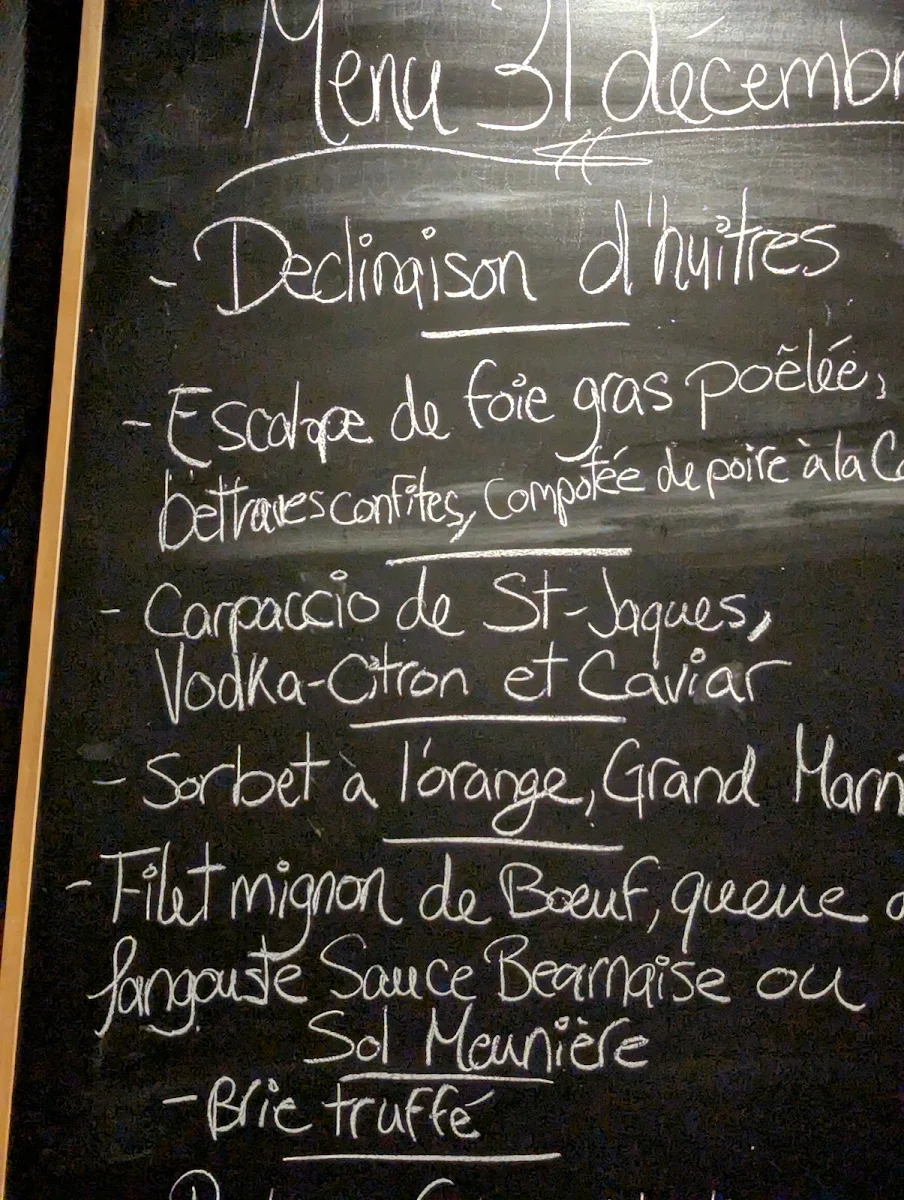 Menu 31 décembr
- Declinaison d'huîtres
- Escalope de foie gras poêlée,
bettraves confites, Compotée de poire à la
- Carpaccio de St-Jaques,
Vodka-Citron et Caviar
- Sorbet à l'orange, Grand Marni
- Filet mignon de Bœuf, queue d
langouste Sauce Bearnaise ou
Sol Meunière
- Brie truffé